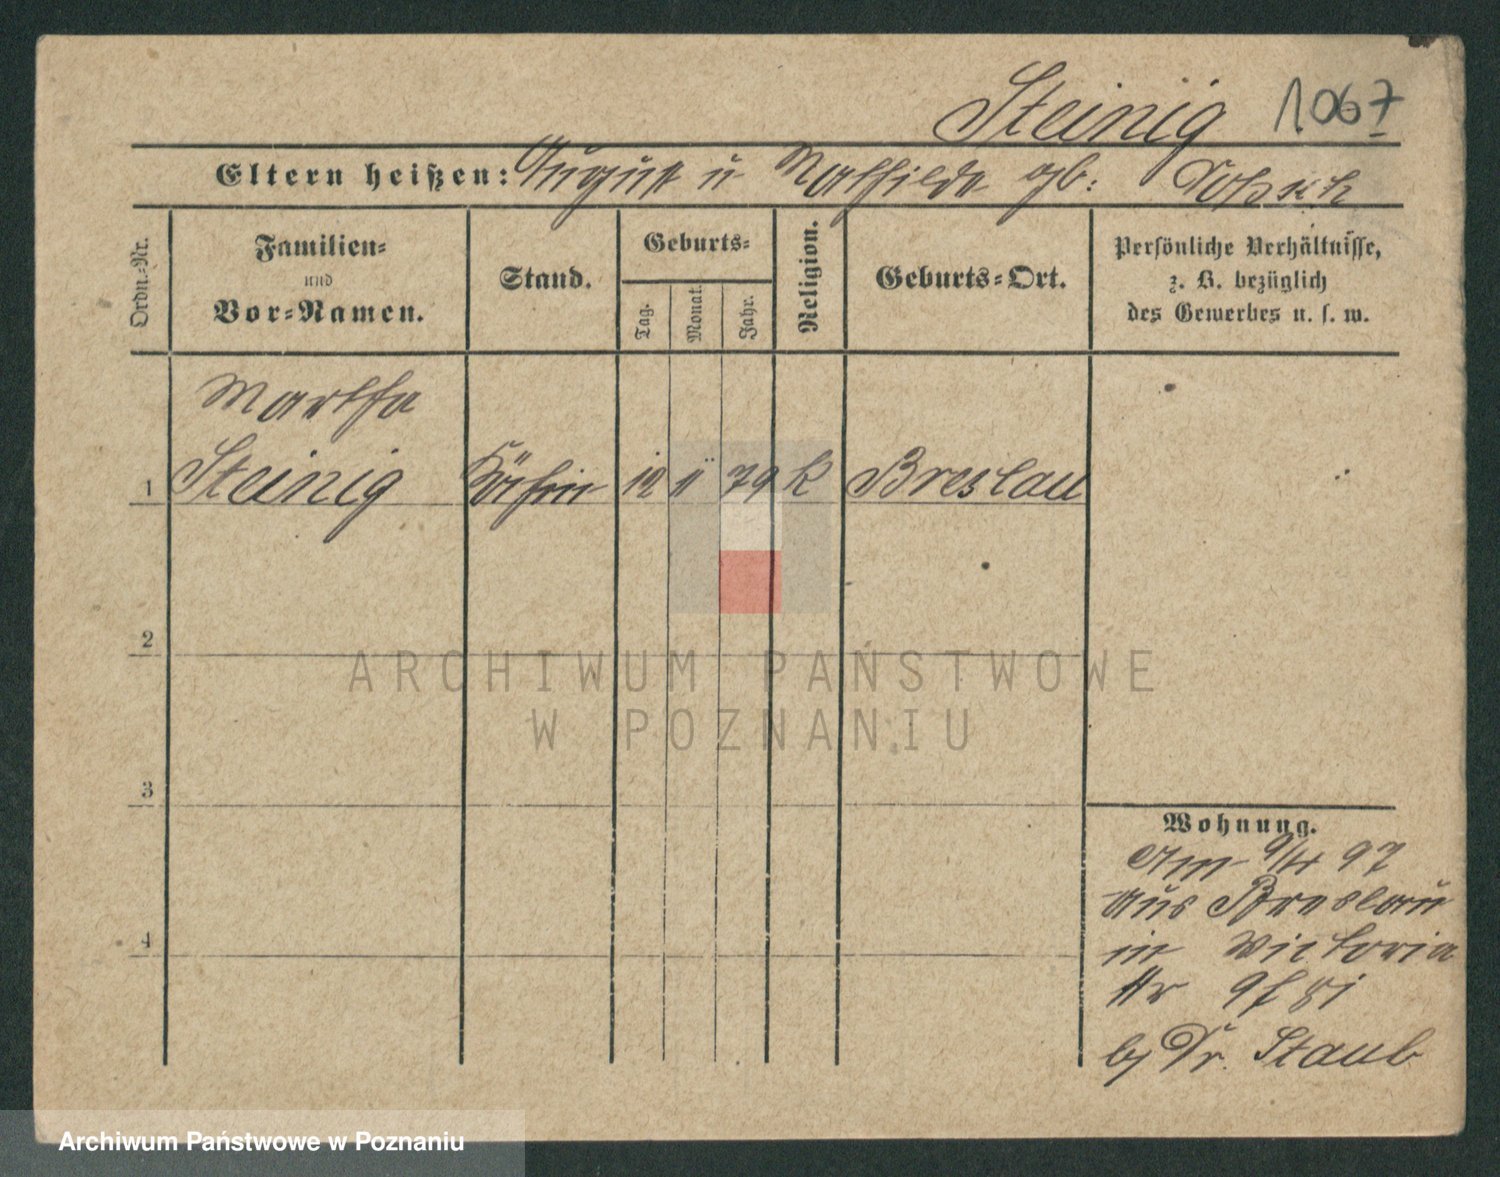 Steinig 1067
Eltern heißen: August u Mathilde gb:
Ordn.-Nr.
Familien-
und
Vor-Namen.
Stand.
Geburts-
Tag.
Monat.
Jahr.
Religion.
Geburts-Ort.
Persönliche Verhältnisse,
z. B. bezüglich
des Gewerbes u. s. w.
Martha
1 Steinig Köchin 12 11 79 k Breslau
2
3
4
Wohnung.
Am 9/4 97
aus Breslau
in Victoria
Str
b/ Dr. Staub
ARCHIWUM PAŃSTWOWE
W POZNANIU
Archiwum Państwowe w Poznaniu